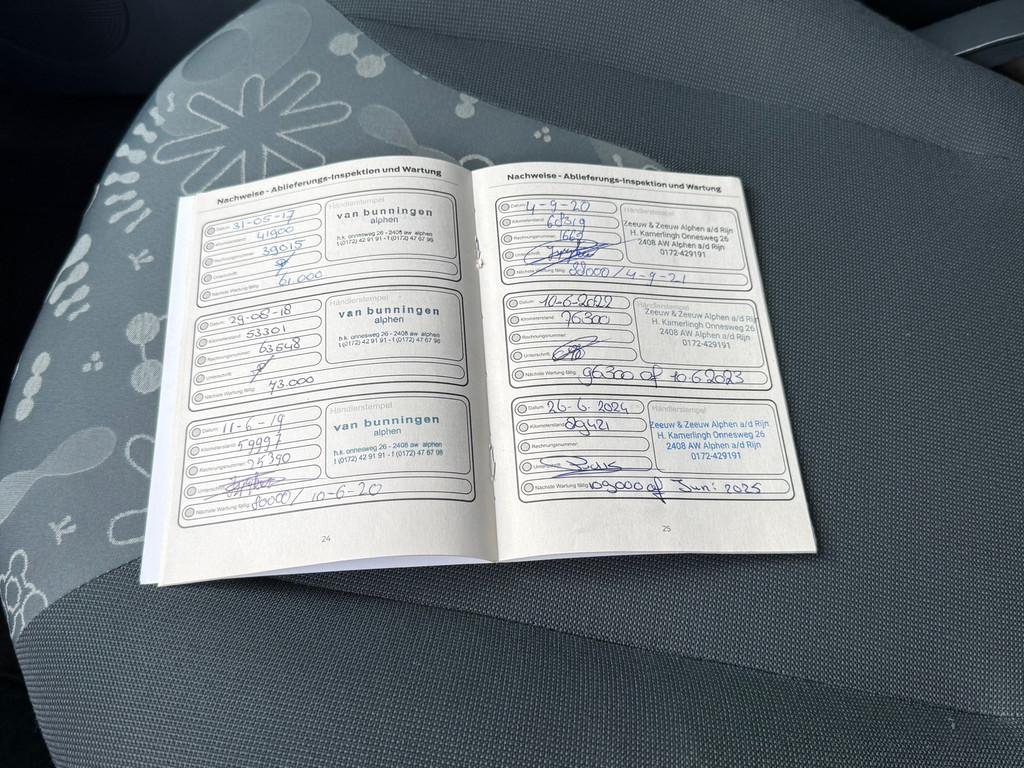 Nachweise - Ablieferungs-Inspektion und Wartung
Datum: 31-05-17
Kilometerstand: 41900
Rechnungsnummer: 39015
Unterschrift:
Nächste Wartung fällig: 61.000
Händlerstempel
van bunningen
alphen
h.k. onnesweg 26 - 2408 aw alphen
t (0172) 42 91 91 - f (0172) 47 67 98
Datum: 29-08-18
Kilometerstand: 53301
Rechnungsnummer: 63548
Unterschrift:
Nächste Wartung fällig: 73.000
Händlerstempel
van bunningen
alphen
h.k. onnesweg 26 - 2408 aw alphen
t (0172) 42 91 91 - f (0172) 47 67 98
Datum: 11-6-19
Kilometerstand: 59997
Rechnungsnummer: 25390
Unterschrift:
Nächste Wartung fällig: 80000/ 10-6-20
Händlerstempel
van bunningen
alphen
h.k. onnesweg 26 - 2408 aw alphen
t (0172) 42 91 91 - f (0172) 47 67 98
24
Nachweise - Ablieferungs-Inspektion und Wartung
Datum: 4-9-20
Kilometerstand: 68319
Rechnungsnummer: 1663
Unterschrift:
Nächste Wartung fällig: 88000 / 4-9-21
Händlerstempel
Zeeuw & Zeeuw Alphen a/d Rijn
H. Kamerlingh Onnesweg 26
2408 AW Alphen a/d Rijn
0172-429191
Datum: 10-6-2022
Kilometerstand: 76300
Rechnungsnummer:
Unterschrift:
Nächste Wartung fällig: 96300 of 10 6 2023
Händlerstempel
Zeeuw & Zeeuw Alphen a/d Rijn
H. Kamerlingh Onnesweg 26
2408 AW Alphen a/d Rijn
0172-429191
Datum: 26-6-2024
Kilometerstand: 89421
Rechnungsnummer:
Unterschrift:
Nächste Wartung fällig: 109000 of Juni 2025
Händlerstempel
Zeeuw & Zeeuw Alphen a/d Rijn
H. Kamerlingh Onnesweg 26
2408 AW Alphen a/d Rijn
0172-429191
25